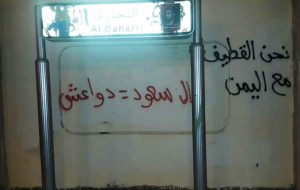 البحاري
Al Bahairi
نحن القطيف
مع اليمن
ال سعود = دواعش